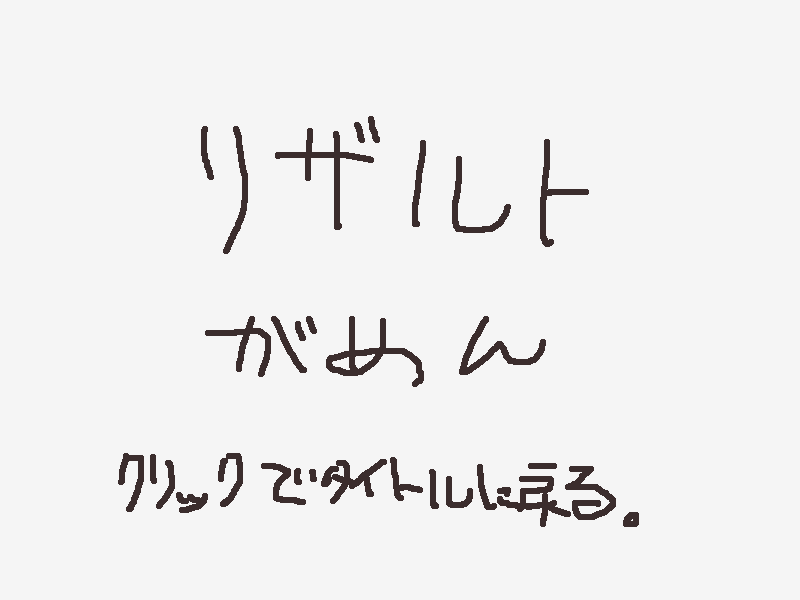 リザルト
がめん
クリックでタイトルに戻る。